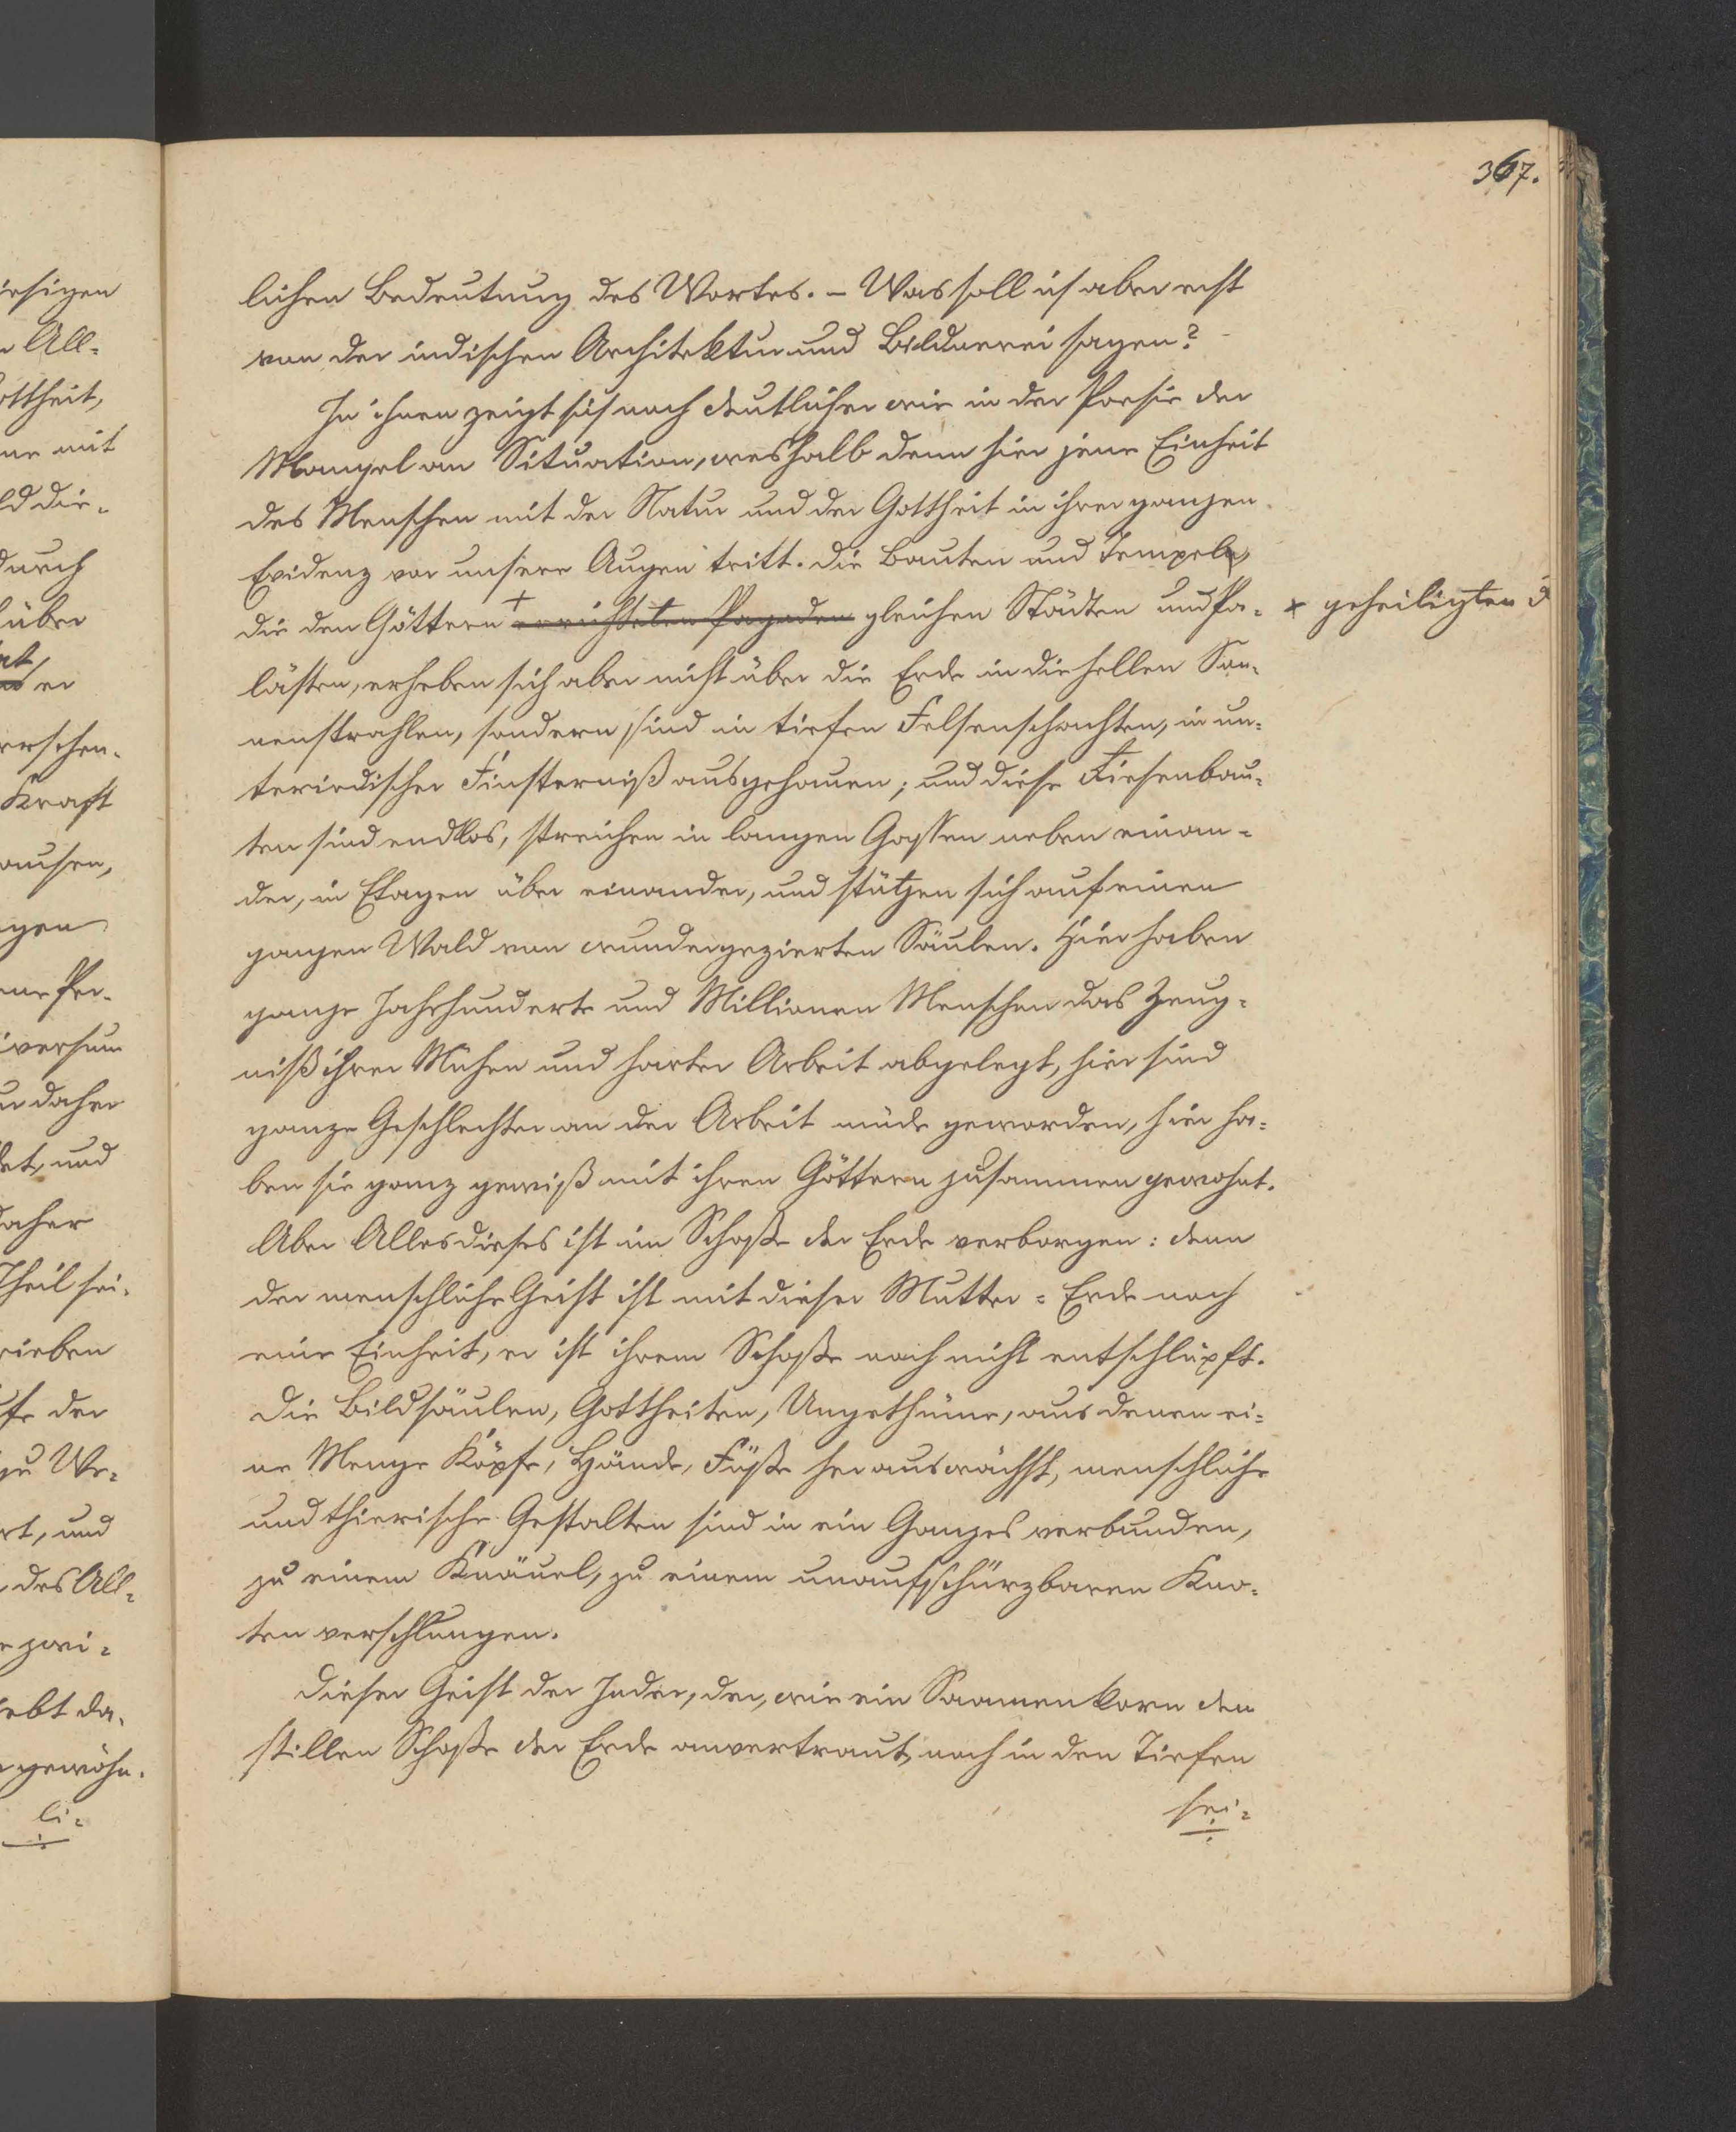 367.
lichen Bedeutung des Wortes. – Was soll ich aber erst
von der indischen Architektur und Bildnerei sagen?
In ihnen zeigt sich noch deutlicher wie in der Poesie der
Mangel an Situation, weshalb denn hier jene Einheit
des Menschen mit der Natur und der Gottheit in ihrer ganzen
Evidenz vor unsere Augen tritt. Die Bauten und Tempel,
die den Göttern + errichteten Pagoden gleichen Städten und Pa- × geheiligten
lästen, erheben sich aber nicht über die Erde in die hellen Son-
nenstrahlen, sondern sind in tiefen Felsenschachten, in un-
terirdischer Finsterniß ausgehauen; und diese Riesenbau-
ten sind endlos, streichen in langen Gassen neben einan-
der, in Etagen über einander, und stützen sich auf einen
ganzen Wald von wunderzierten Säulen. Hier haben
ganze Jahrhunderte und Millionen Menschen das Zeug-
niß ihrer Mühen und harter Arbeit abgelegt, hier sind
ganze Geschlechter an der Arbeit müde geworden, hier ha-
ben sie ganz gewiß mit ihren Göttern zusammen gewohnt.
Aber Alles dieses ist im Schoße der Erde verborgen: denn
der menschliche Geist ist mit dieser Mutter-Erde noch
eine Einheit, er ist ihrem Schoße noch nicht entschlüpft.
Die Bildsäulen, Gottheiten, Ungethüme, aus denen ei-
ne Menge Köpfe, Hände, Füße herauswächst, menschliche
und thierische Gestalten sind in ein Ganzes verbunden,
zu einem Knäuel, zu einem unaufschürzbaren Kno-
ten verschlungen.
Dieser Geist der Inder, der, wie ein Saamenkorn dem
stillen Schoße der Erde anvertraut, noch in den Tiefen
sei-